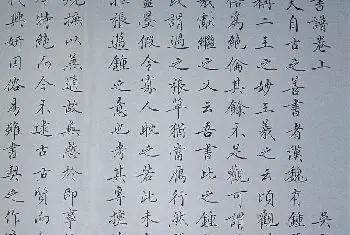 書譜卷上 吳
夫自古之善書者漢魏有鍾
稱二王之妙王羲之云頃
信為絕倫其餘不足觀可謂
羲獻繼之又云吾書比之鍾
或謂過之張草猶當雁行然
盡墨假令寡人耽之若此未
推張邁鍾之意也考其專擅
規摭以兼通故無慙於即事
特絕而今不逮古古質而
代興妍因俗易雖書契之作